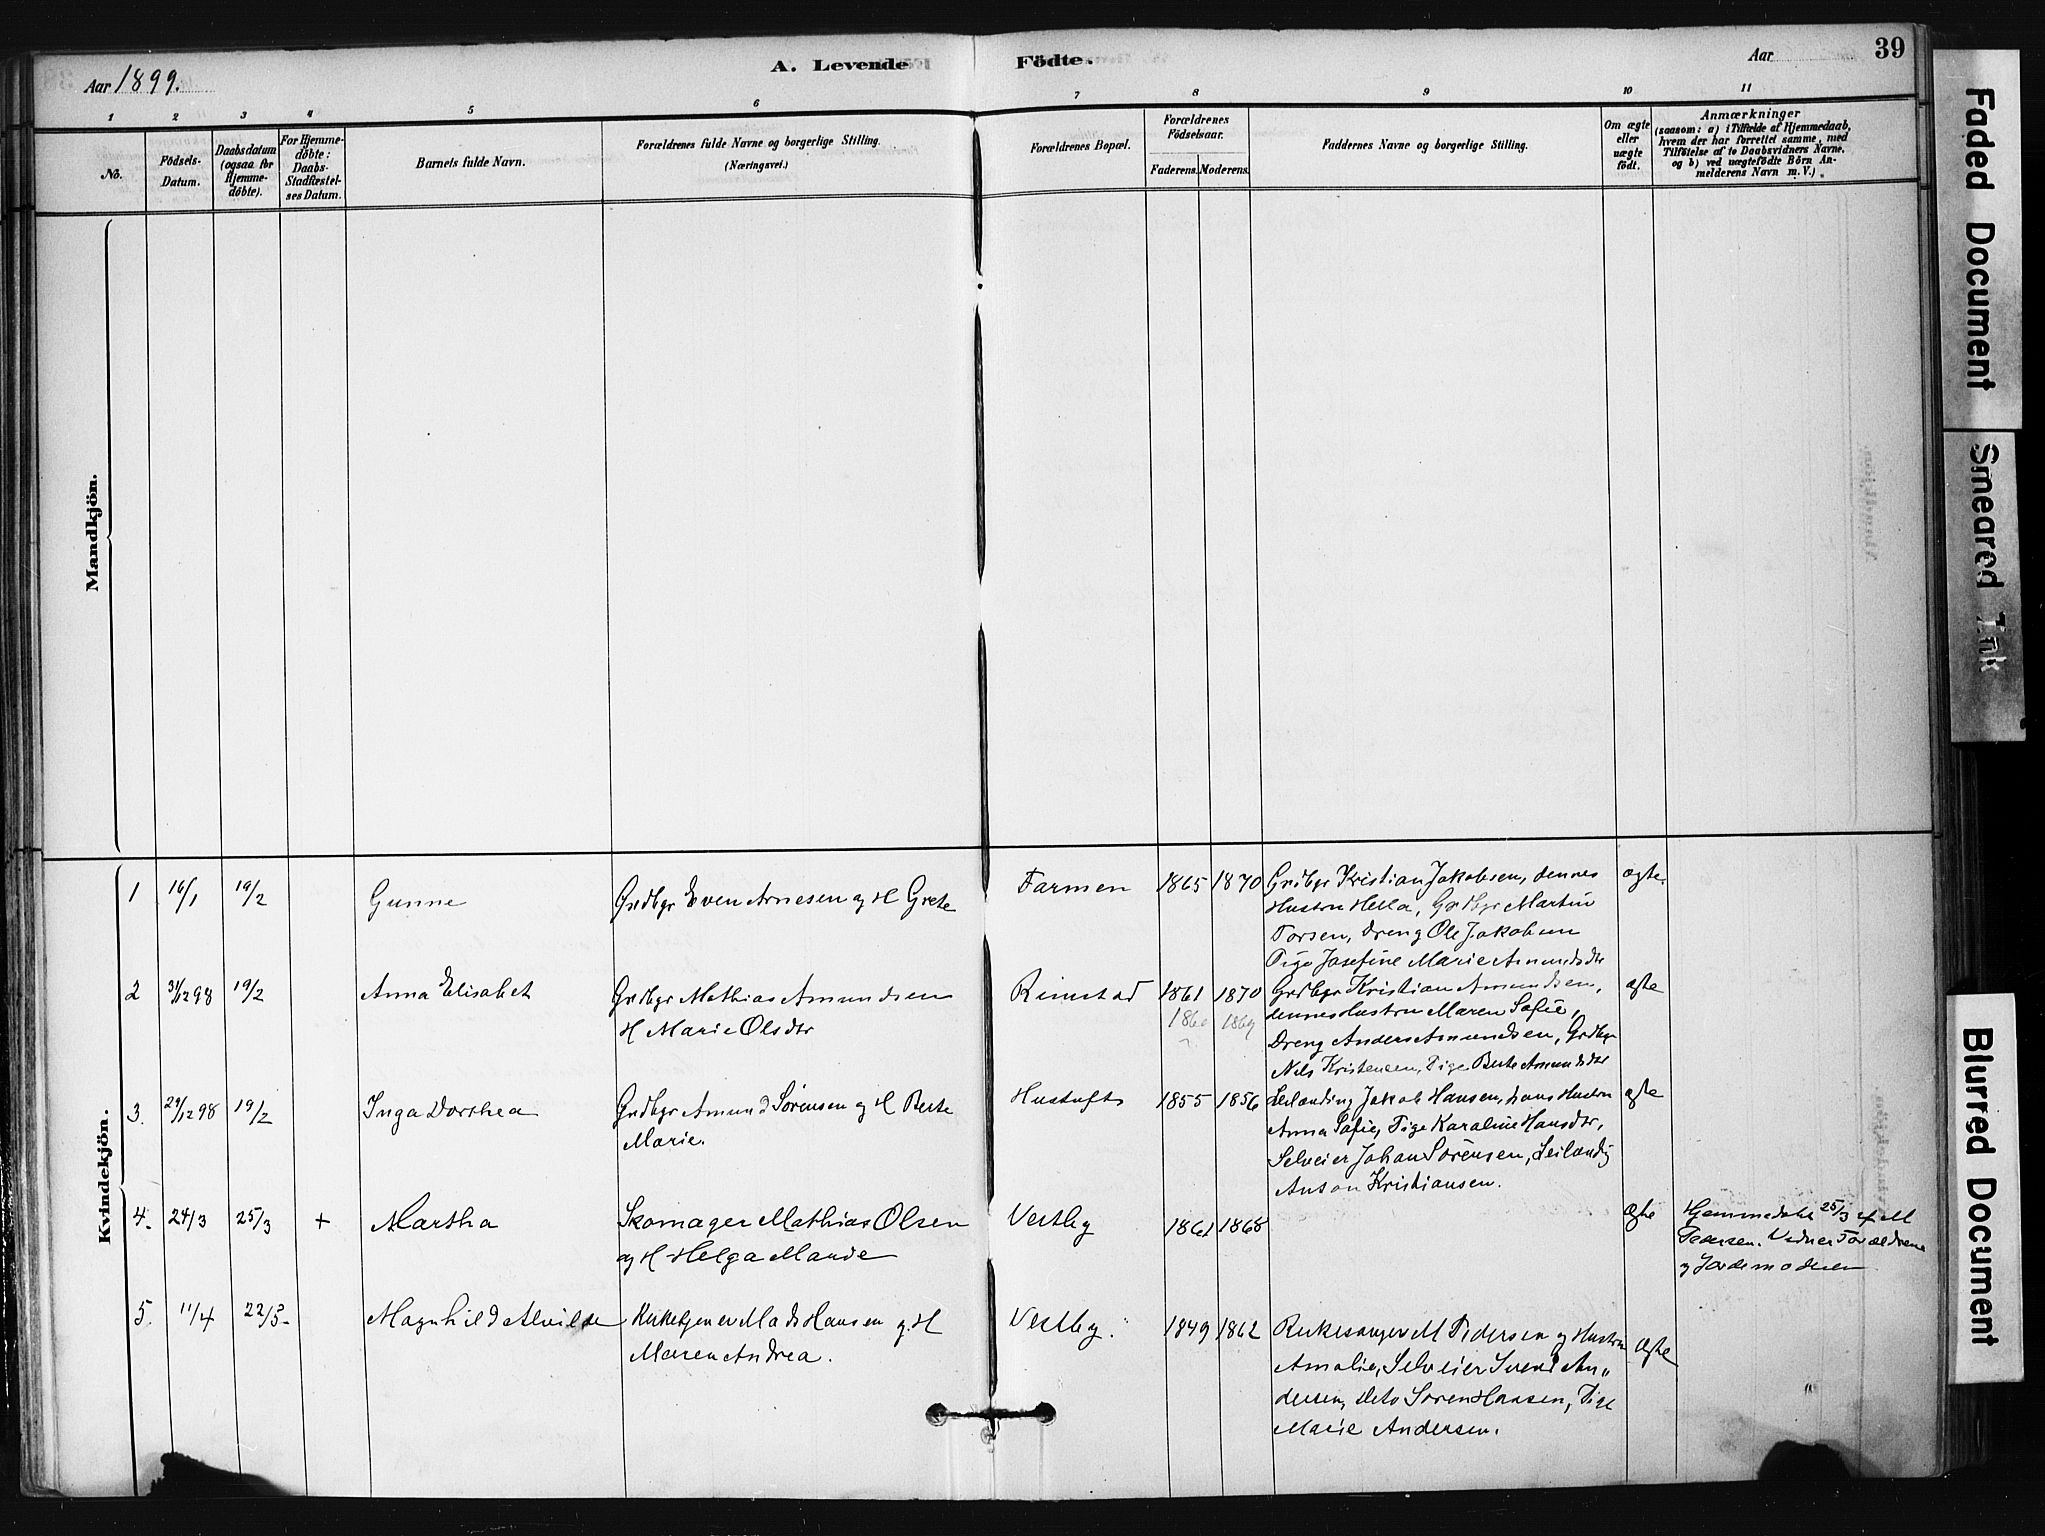 39
A. Levende Födte.
Aar 1899.
Aar
1 2 3 4 5 6 7 8 9 10 11
No.
Födsels-
Datum.
Daabsdatum
(ogsaa for
Hjemme-
döbte).
For Hjemme-
döbte:
Daabs-
Stadfæstel-
ses Datum.
Barnets fulde Navn.
Forældrenes fulde Navne og borgerlige Stilling.
(Næringsvei.)
Forældrenes Bopæl.
Forældrenes
Födselsaar.
Faderens. Moderens.
Faddernes Navne og borgerlige Stilling.
Om ægte
eller
uægte
födt.
Anmærkninger
(saasom: a) i Tilfælde af Hjemmedaab,
hvem der har forrettet samme, med
Tilföielse af to Daabsvidners Navne,
og b) ved uægtefödte Börn An-
melderens Navn m. V.)
Mandkjön.
Kvindekjön.
1 16/1 19/2 Gunne
Grdbgr Even Arnesen og H Grete
Farmen 1865 1870
Grdbgr Kristian Jakobsen, dennes
Hustru Hella, Grdbgr Martin
Torsen, Dreng Ole Jakobsen
Pige Josefine Marie Amundsdtr
ægte.
2 31/12 98 19/2 Anna Elisabet
Grdbgr Mathias Amundsen
H Marie Olsdtr
Rimstad 1861 1870
1860 1869
Grdbgr Kristian Amundsen,
dennes Hustru Maren Sofie,
Dreng Anders Amundsen, Grdbgr
Nils Kristensen, Pige Berte Amundsdtr
ægte
3. 29/12 98 19/2 Inga Dorthea
Grdbgr Amund Sørensen og H Berte
Marie.
Hustuft 1855 1856
Leilænding Jakob Hansen, hans Hustru
Anna Sofie, Pige Karaline Hansdtr,
Selveier Johan Sørensen, Leilændig
Anton Kristiansen.
ægte
4. 24/3 25/3 + Martha
Skomager Mathias Olsen
og H Helga Maude
Vestby 1861 1868
ægte
Hjemmedøbt 25/3 af M
Pedersen. Vidner Forældrene
og Jordemoderen
5. 11/4 22/5 Magnhild Alvilde
Kirketjener Mads Hansen og H
Maren Andrea.
Vestby. 1849 1862
Kirkesanger M Pedersen og Hustru
Amalie, Selveier Svend An-
dersen, Dito Søren Hansen, Pige
Marie Andersen.
ægte
Faded Document
Smeared Ink
Blurred Document